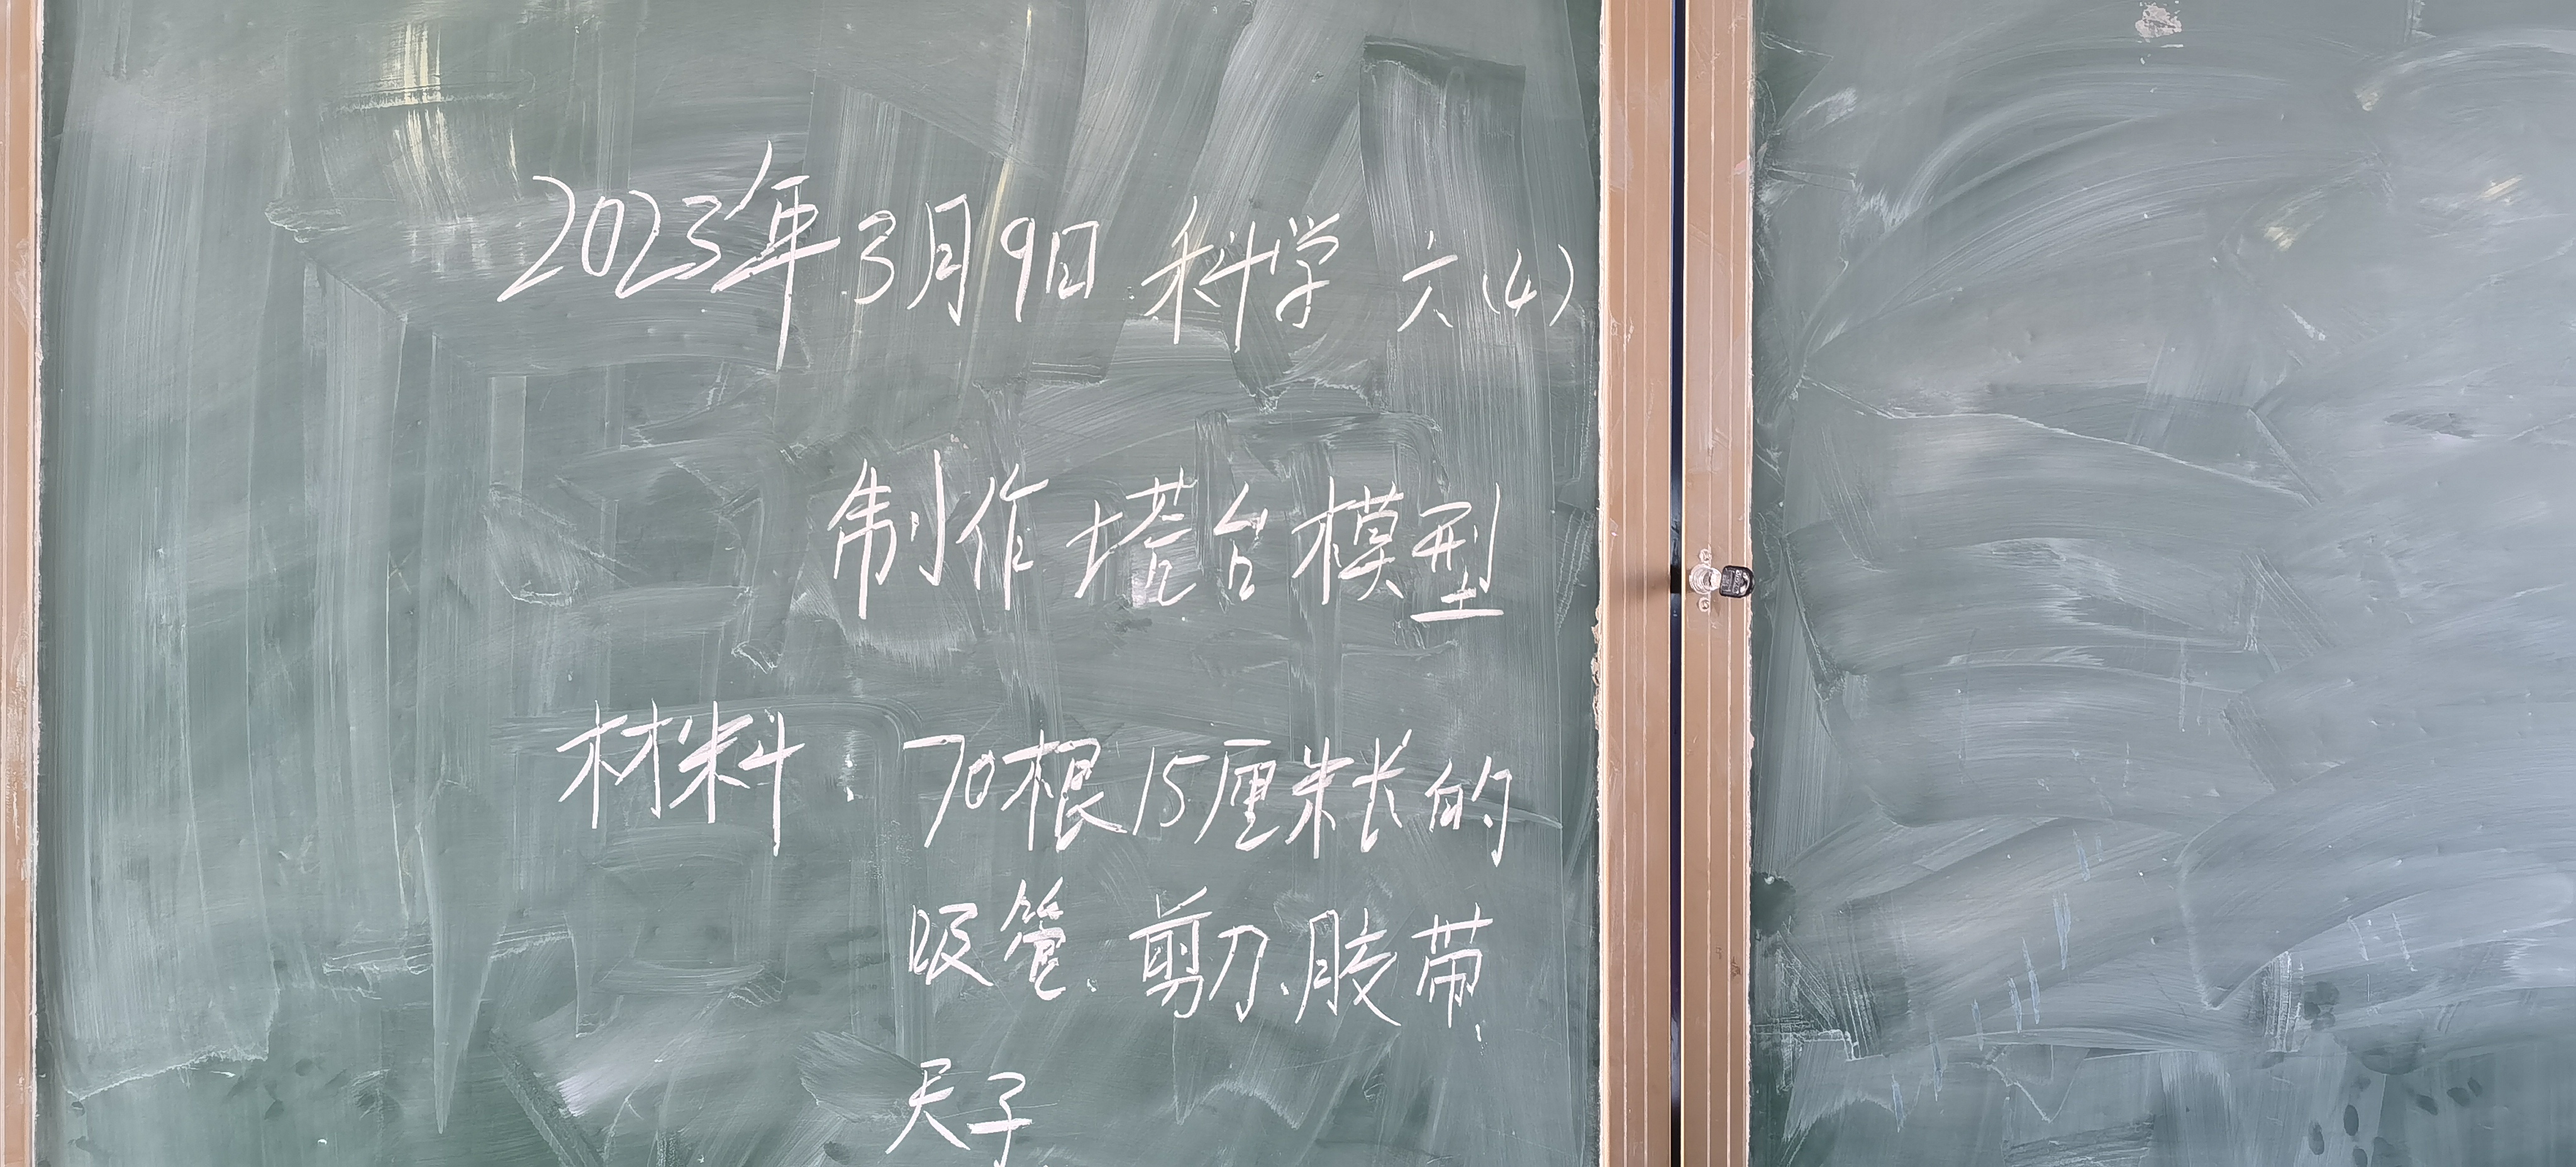 2023年3月9日 科学 六(4)
制作塔台模型
材料：70根15厘米长的
吸管、剪刀、胶带、
天子